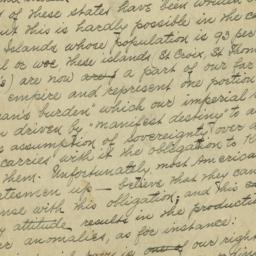 of these states have been written
but this is hardly possible in the ca
Islands, whose population is 93 per
al or woe these islands St Croix, St Thom
s) are now are a part of our far
empire and represent one portion
an's burden" which our imperial
n driven by "manifest destiny" to a
s assumption of sovereignty over
carries with it the obligation to
them. Unfortunately, most America
tesmen up — believe that they can
ense with this obligation; and this
y attitude results in the producti
er anomalies, as for instance:
of our righ